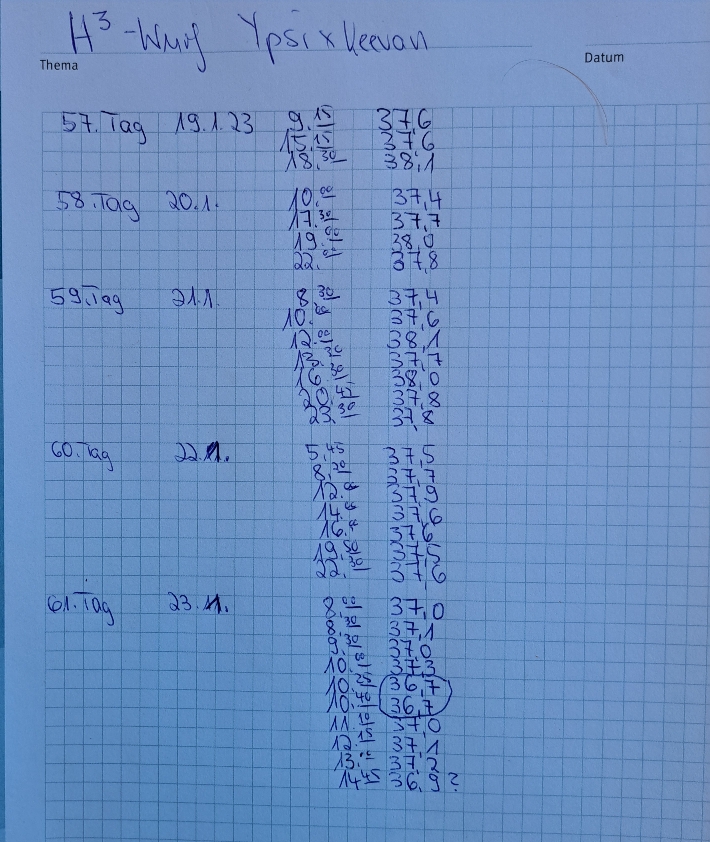 H³-Wurf Ypsi x Keevan
Thema Datum
57. Tag 19.1.23 9.15 37,6
15.15 37,6
18.30 38,1
58. Tag 20.1. 10.00 37,4
17.30 37,7
19.00 38,0
22.00 37,8
59. Tag 21.1. 8.30 37,4
10.30 37,6
12.00 38,1
13.30 37,7
16.30 38,0
20.45 37,8
23.30 37,8
60. Tag 22.1. 5.45 37,5
8.30 37,7
12.00 37,9
14.00 37,6
16.00 37,6
19.30 37,5
22.30 37,6
61. Tag 23.1. 8.00 37,0
8.30 37,1
9.30 37,0
10.00 37,3
10.25 36,7
10.40 36,7
11.10 37,0
12.15 37,1
13.00 37,2
14.45 36,9?